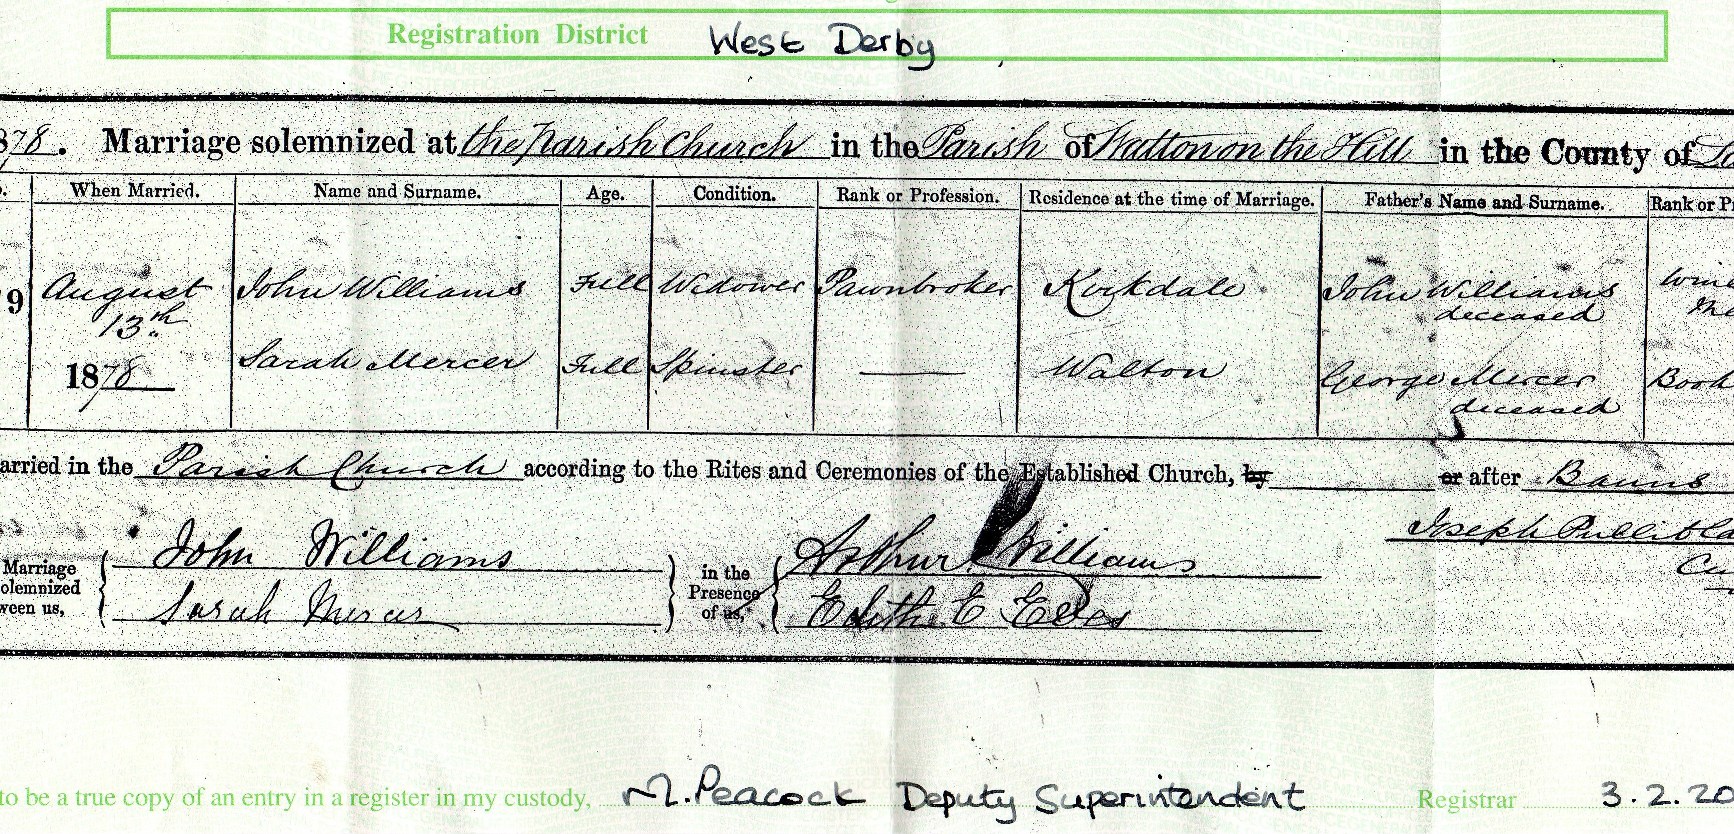 Registration District West Derby
878. Marriage solemnized at the Parish Church in the Parish of Walton on the Hill in the County of
When Married. Name and Surname. Age. Condition. Rank or Profession. Residence at the time of Marriage. Father's Name and Surname. Rank or Pr
9 August 13th 1878 John Williams Full Widower Pawnbroker Kirkdale John Williams deceased Wine
Sarah Mercer Full Spinster Walton George Mercer deceased Book
arried in the Parish Church according to the Rites and Ceremonies of the Established Church, by or after Banns
Joseph
Marriage olemnized ween us, John Williams in the Presence of us, Arthur Williams
Sarah Mercer Edith E
to be a true copy of an entry in a register in my custody, M. Peacock Deputy Superintendent Registrar 3.2.20